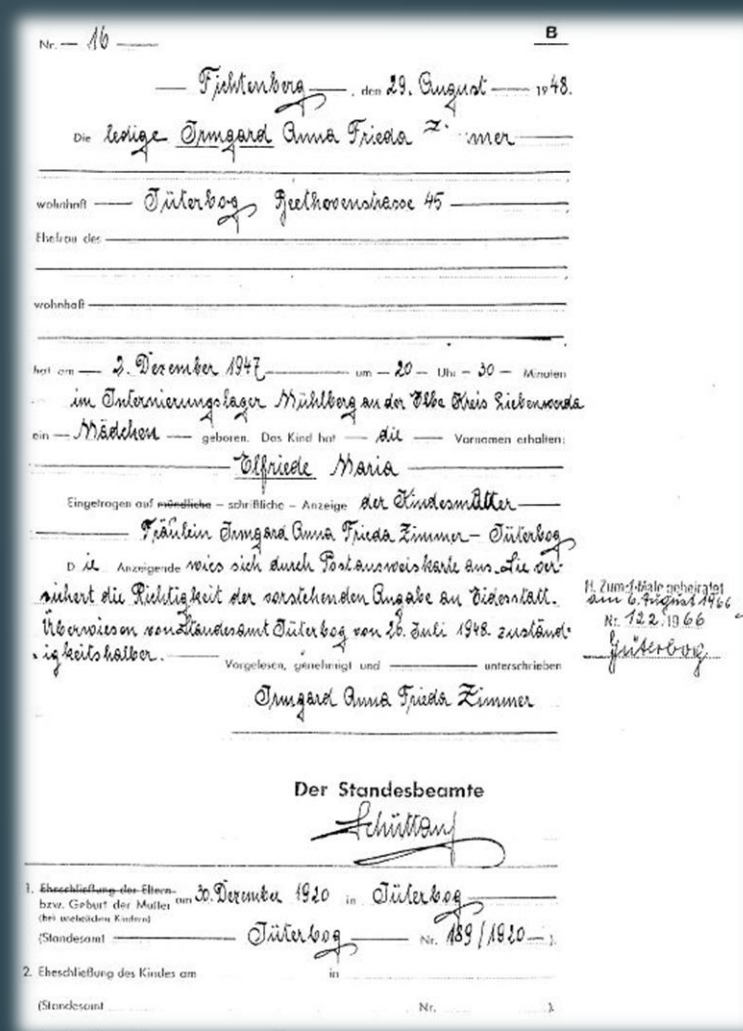 Nr. — 16 — B
— Fichtenberg —, den 29. August — 1948.
Die ledige Irmgard Anna Frieda Zi mer —
wohnhaft — Jüterbog Beethovenstrasse 45 —
Ehefrau des —
wohnhaft —
hat am — 2. Dezember 1947 — um — 20 — Uhr — 30 — Minuten
im Internierungslager Mühlberg an der Elbe Kreis Liebenwerda
ein — Mädchen — geboren. Das Kind hat — die — Vornamen erhalten:
— Elfriede Maria —
Eingetragen auf mündliche – schriftliche – Anzeige der Kindesmutter —
— Fräulein Irmgard Anna Frieda Zimmer – Jüterbog
Die Anzeigende wies sich durch Postausweiskarte aus. Sie ver-
sichert die Richtigkeit der vorstehenden Angabe an Eidesstatt.
Überwiesen von Standesamt Jüterbog von 26. Juli 1948. zuständ-
igkeitshalber. —
Vorgelesen, genehmigt und — unterschrieben
Irmgard Anna Frieda Zimmer
H. Zum 1. Male geheiratet
am 6. August 1966
Nr. 122/1966
Jüterbog
Der Standesbeamte
1. Eheschließung der Eltern
bzw. Geburt der Mutter am 30. Dezember 1920 in Jüterbog —
(bei unehelichen Kindern)
(Standesamt — Jüterbog — Nr. 189/1920 — ).
2. Eheschließung des Kindes am in
(Standesamt Nr. ).